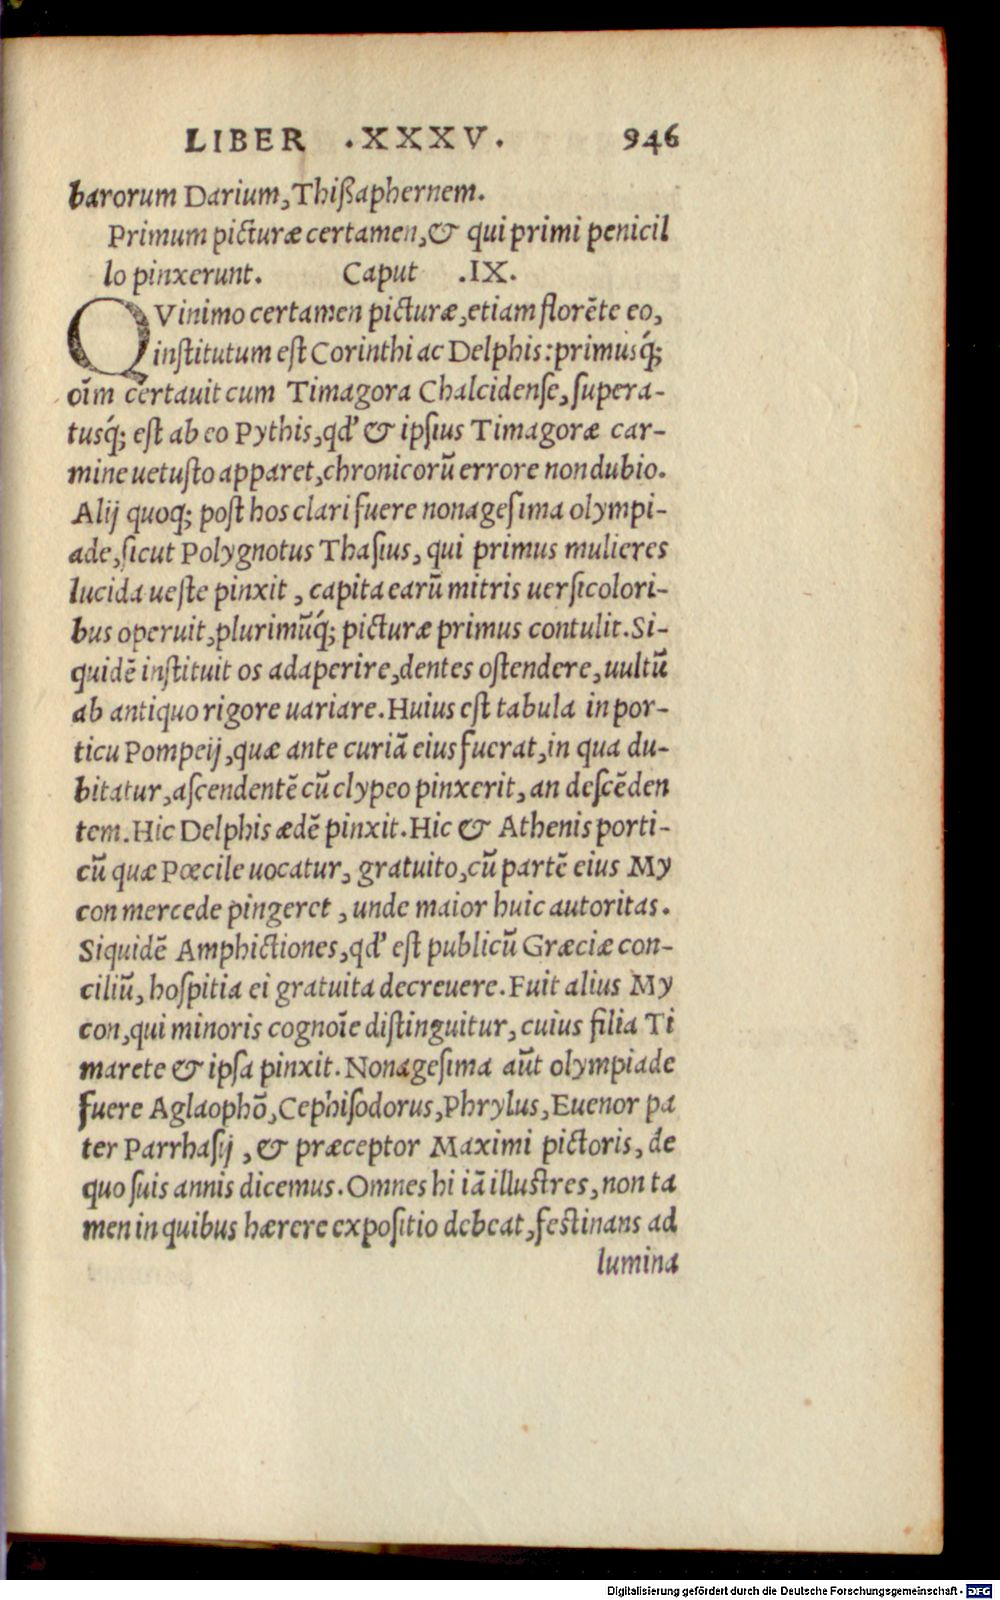 LIBER .XXXV. 946
barorum Darium, Thißaphernem.
Primum picturæ certamen, & qui primi penicil
lo pinxerunt. Caput .IX.
QVinimo certamen picturæ, etiam florẽte eo,
institutum est Corinthi ac Delphis: primusq́;
oĩm certauit cum Timagora Chalcidense, supera-
tusq́; est ab eo Pythis, qd' & ipsius Timagoræ car-
mine uetusto apparet, chronicorũ errore non dubio.
Alij quoq; post hos clari fuere nonagesima olympi-
ade, sicut Polygnotus Thasius, qui primus mulieres
lucida ueste pinxit, capita earũ mitris uersicolori-
bus operuit, plurimũq́; picturæ primus contulit. Si-
quidẽ instituit os adaperire, dentes ostendere, uultũ
ab antiquo rigore uariare. Huius est tabula in por-
ticu Pompeij, quæ ante curiã eius fuerat, in qua du-
bitatur, ascendentẽ cũ clypeo pinxerit, an descẽden
tem. Hic Delphis ædẽ pinxit. Hic & Athenis porti-
cũ quæ Pœcile uocatur, gratuito, cũ partẽ eius My
con mercede pingeret, unde maior huic autoritas.
Siquidẽ Amphictiones, qd' est publicũ Græciæ con-
ciliũ, hospitia ei gratuita decreuere. Fuit alius My
con, qui minoris cognoĩe distinguitur, cuius filia Ti
marete & ipsa pinxit. Nonagesima aũt olympiade
fuere Aglaophõ, Cephisodorus, Phrylus, Euenor pa
ter Parrhasij, & præceptor Maximi pictoris, de
quo suis annis dicemus. Omnes hi iã illustres, non ta
men in quibus hærere expositio debeat, festinans ad
lumina
Digitalisierung gefördert durch die Deutsche Forschungsgemeinschaft - DFG